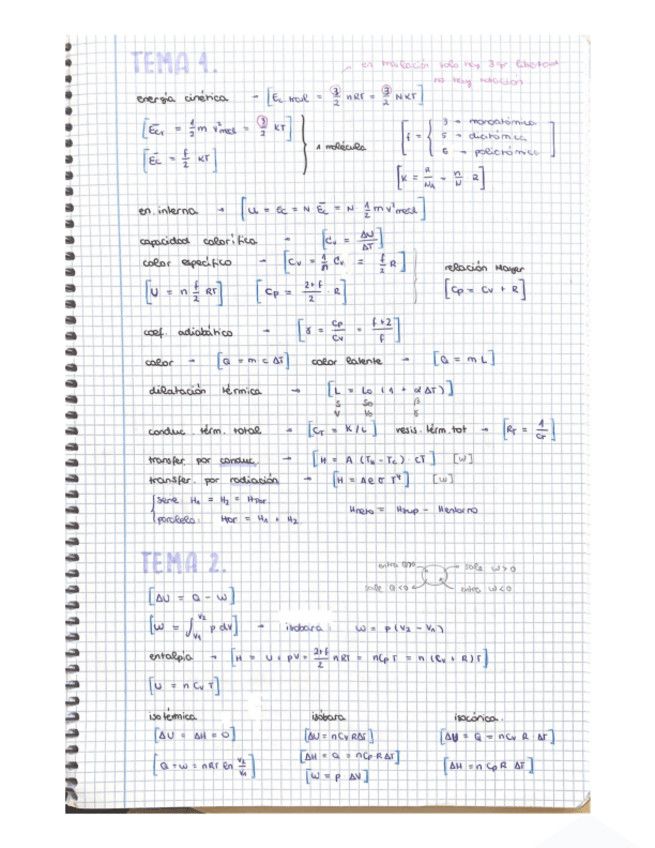 TEMA 1.
en traslación solo hay 3 y
no hay rotación
energía cinética → [Ec trasl = 3/2 nRT = 3/2 NKT]
[Ect = 1/2 m v²med = 3/2 KT]
[Ec = f/2 KT]
1 molécula
f = { 3 → monoatómico
5 → diatómica
6 → poliatómica
[K = R/NA = n/N R]
en. interna → [U = Ec = N Ec = N · 1/2 m v²med]
capacidad calorífica → [Cv = ΔU/ΔT]
calor específico → [Cv = 1/n Cv = f/2 R]
relación Mayer
[U = n f/2 RT] [Cp = 2+f/2 · R] [Cp = Cv + R]
coef. adiabático → [γ = Cp/Cv = f+2/f]
calor → [Q = m c ΔT] calor latente → [Q = m L]
dilatación térmica → [L = Lo (1 + α ΔT)]
S So β
V Vo γ
conduc. térm. total → [CT = K/L] resis. térm. tot → [RT = 1/CT]
transfer. por conduc. → [H = A (TH - Tc) · CT] [W]
transfer. por radiación → [H = A e σ T⁴] [W]
serie H1 = H2 = HTOT
paralelo: HTOT = H1 + H2
Hneto = Hsup - Hentorno
TEMA 2.
entra Q>0 sale W>0
sale Q<0 entra W<0
[ΔU = Q - W]
[W = ∫V1 V2 p dV] → isobara: W = p (V2 - V1)
entalpía → [H = U + pV = 2+f/2 nRT = nCp T = n (Cv + R) T]
[U = n Cv T]
isotérmica isóbara isocórica.
[ΔU = ΔH = 0] [ΔU = nCv R ΔT] [ΔU = Q = nCv R ΔT]
[Q = W = nRT ln V2/V1] [ΔH = Q = nCp R ΔT] [ΔH = n Cp R ΔT]
[W = p ΔV]